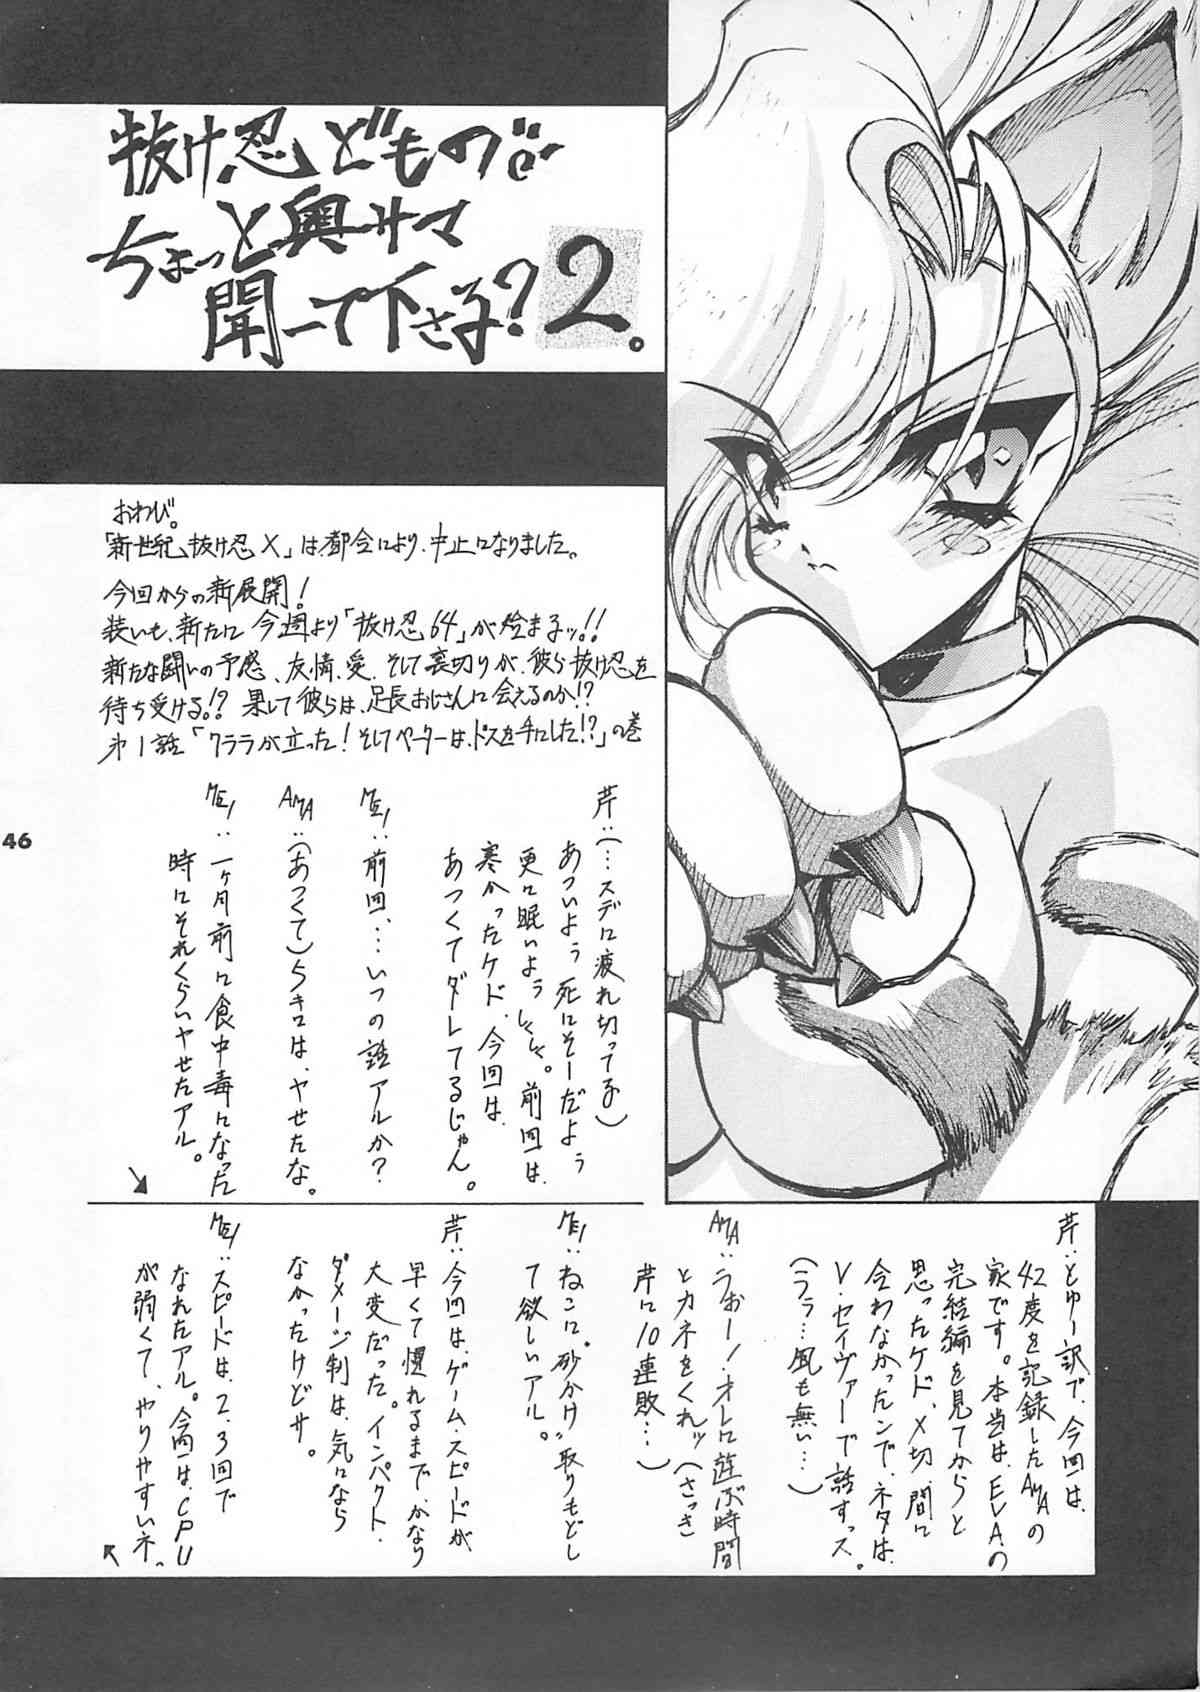 抜け忍どもの゛
ちょっと奥サマ
聞いて下さる？2。
おわび。
「新世紀、抜け忍X」は、都合により、中止になりました。
今回からの新展開！
装いも、新たに今週より「抜け忍64」が始まるッ!!
新たな闘いの予感、友情、愛、そして裏切りが、彼ら抜け忍を
待ち受ける。!?果して彼らは、足長おじさんに会えるのか!?
第1話「クララが立った！そしてペーターは、ドスを手にした!?」の巻
芹：(…スデに疲れ切ってる)
あついよう死にそーだよう
更に眠いよぅしくしく。前回は、
寒かったケド、今回は、
あつくてダレてるじゃん。
MEI：前回、…いつの話アルか？
AMA：(あつくて)5キロは、ヤせたな。
MEI：一ヶ月前に食中毒になった
時にそれくらいヤせたアル。
芹：とゆー訳で、今回は、
42度を記録したAMAの
家です。本当は、EVAの
完結編を見てからと
思ったケド、〆切、間に
合わなかったンで、ネタは、
V・セイヴァーで話すっス。
(ララ…風も無い…)
AMA：うぉー！オレに遊ぶ時間
とカネをくれッ(さっき
芹に10連敗…)
MEI：ねこに"砂かけ"取りもどし
て欲しいアル。
芹：今回は、ゲーム・スピードが、
早くて慣れるまでかなり
大変だった。インパクト・
ダメージ制は、気になら
なかったけどサ。
MEI：スピードは、2、3回で
なれたアル。今回は、CPU
が弱くて、やりやすいネ。
46